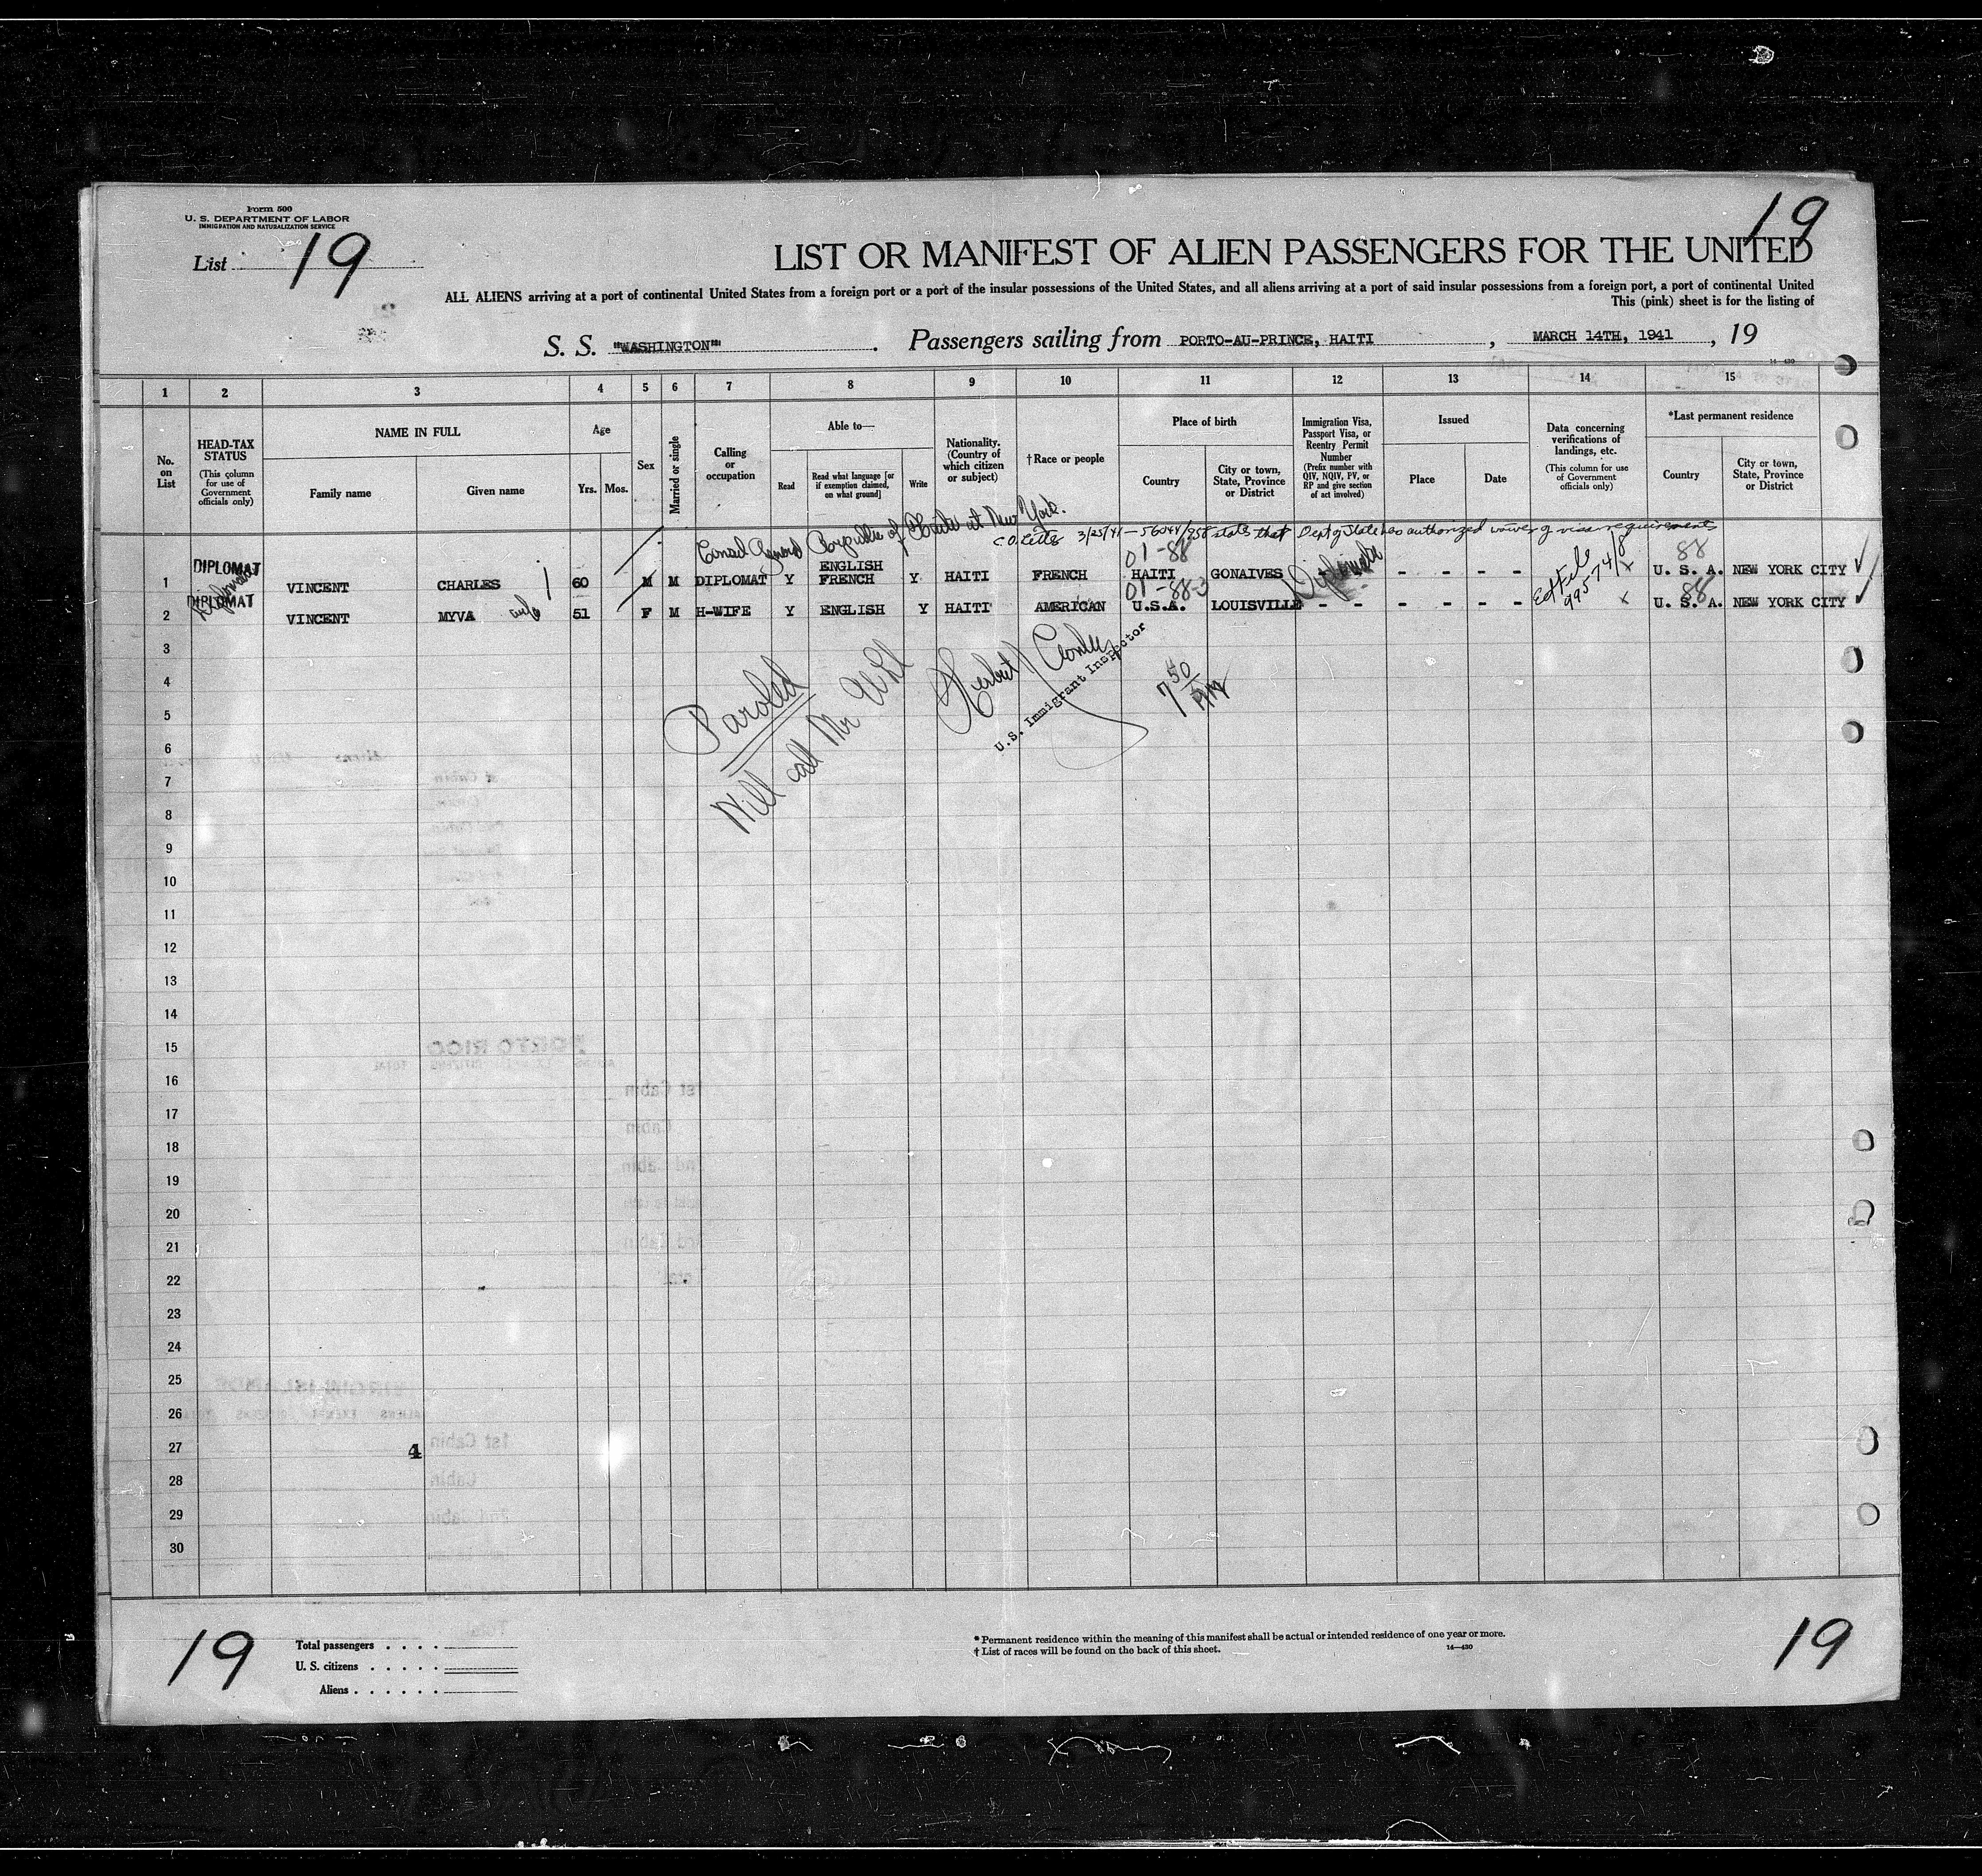 19
Form 500
U. S. DEPARTMENT OF LABOR
IMMIGRATION AND NATURALIZATION SERVICE
List 19
LIST OR MANIFEST OF ALIEN PASSENGERS FOR THE UNITED
ALL ALIENS arriving at a port of continental United States from a foreign port or a port of the insular possessions of the United States, and all aliens arriving at a port of said insular possessions from a foreign port, a port of continental United
This (pink) sheet is for the listing of
S. S. "WASHINGTON" . Passengers sailing from PORTO-AU-PRINCE, HAITI , MARCH 14TH, 1941 , 19
14-430
1 2 3 4 5 6 7 8 9 10 11 12 13 14 15
No. on List
HEAD-TAX STATUS
(This column for use of Government officials only)
NAME IN FULL
Family name
Given name
Age
Yrs. Mos.
Sex
Married or single
Calling or occupation
Able to—
Read
Read what language [or if exemption claimed, on what ground]
Write
Nationality. (Country of which citizen or subject)
†Race or people
Place of birth
Country
City or town, State, Province or District
Immigration Visa, Passport Visa, or Reentry Permit Number
(Prefix number with QIV, NQIV, PV, or RP and give section of act involved)
Issued
Place
Date
Data concerning verifications of landings, etc.
(This column for use of Government officials only)
*Last permanent residence
Country
City or town, State, Province or District
Consul General Republic of Haiti at New York.
C.O. letter 3/25/41 — 56044/958 states that Dept of State has authorized waiver of visa requirements
01-88 88
ENGLISH
1 DIPLOMAT VINCENT CHARLES 60 M M DIPLOMAT Y FRENCH Y HAITI FRENCH HAITI GONAIVES Diplomatic - - - - - x U. S. A. NEW YORK CITY
01-88-3 88
2 DIPLOMAT VINCENT MYVA wife 51 F M H-WIFE Y ENGLISH Y HAITI AMERICAN U.S.A. LOUISVILLE - - - - - - x U. S. A. NEW YORK CITY
99574/8
Paroled
Will call Mr Uhl
Herbert
U.S. Immigrant Inspector
7 50 PM
3
4
5
6
7
8
9
10
11
12
13
14
15
16
17
18
19
20
21
22
23
24
25
26
27 4
28
29
30
19
Total passengers . . . .
U. S. citizens . . . . .
Aliens . . . . . .
* Permanent residence within the meaning of this manifest shall be actual or intended residence of one year or more.
† List of races will be found on the back of this sheet.
14-430
19